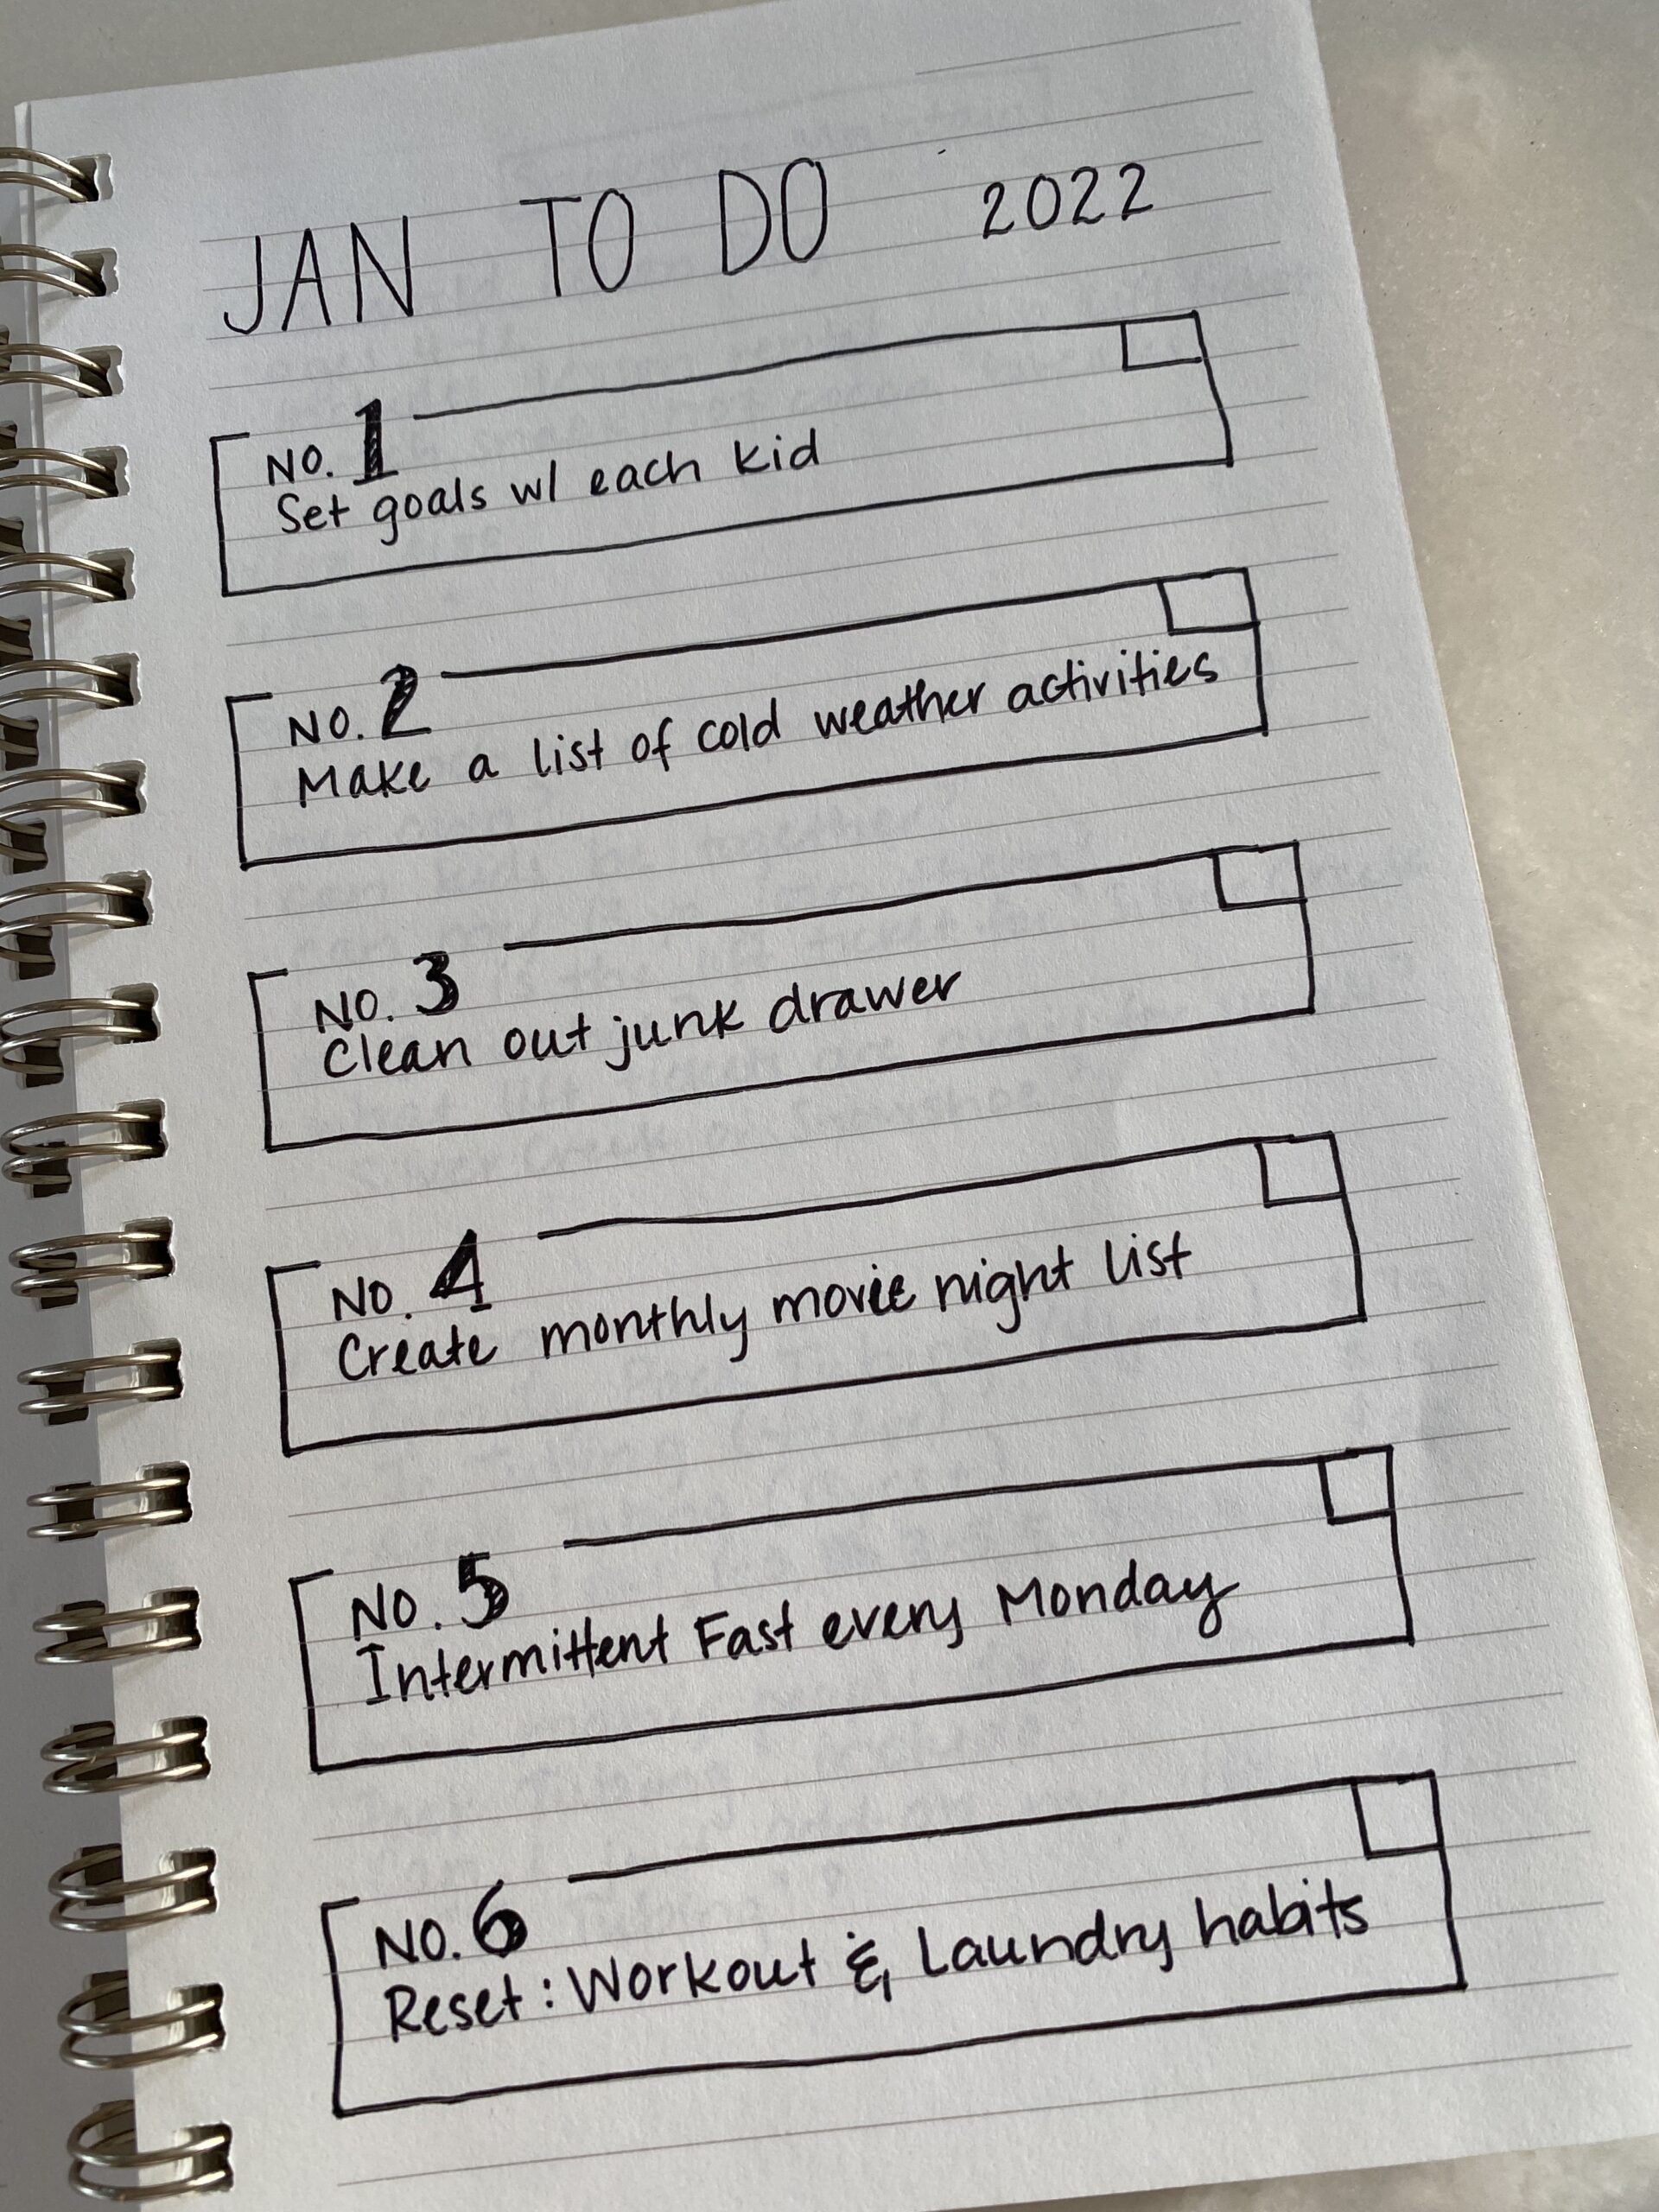 JAN TO DO 2022
NO. 1
Set goals w/ each kid
NO. 2
Make a list of cold weather activities
NO. 3
Clean out junk drawer
NO. 4
Create monthly movie night list
NO. 5
Intermittent Fast every Monday
NO. 6
Reset: Workout & Laundry habits